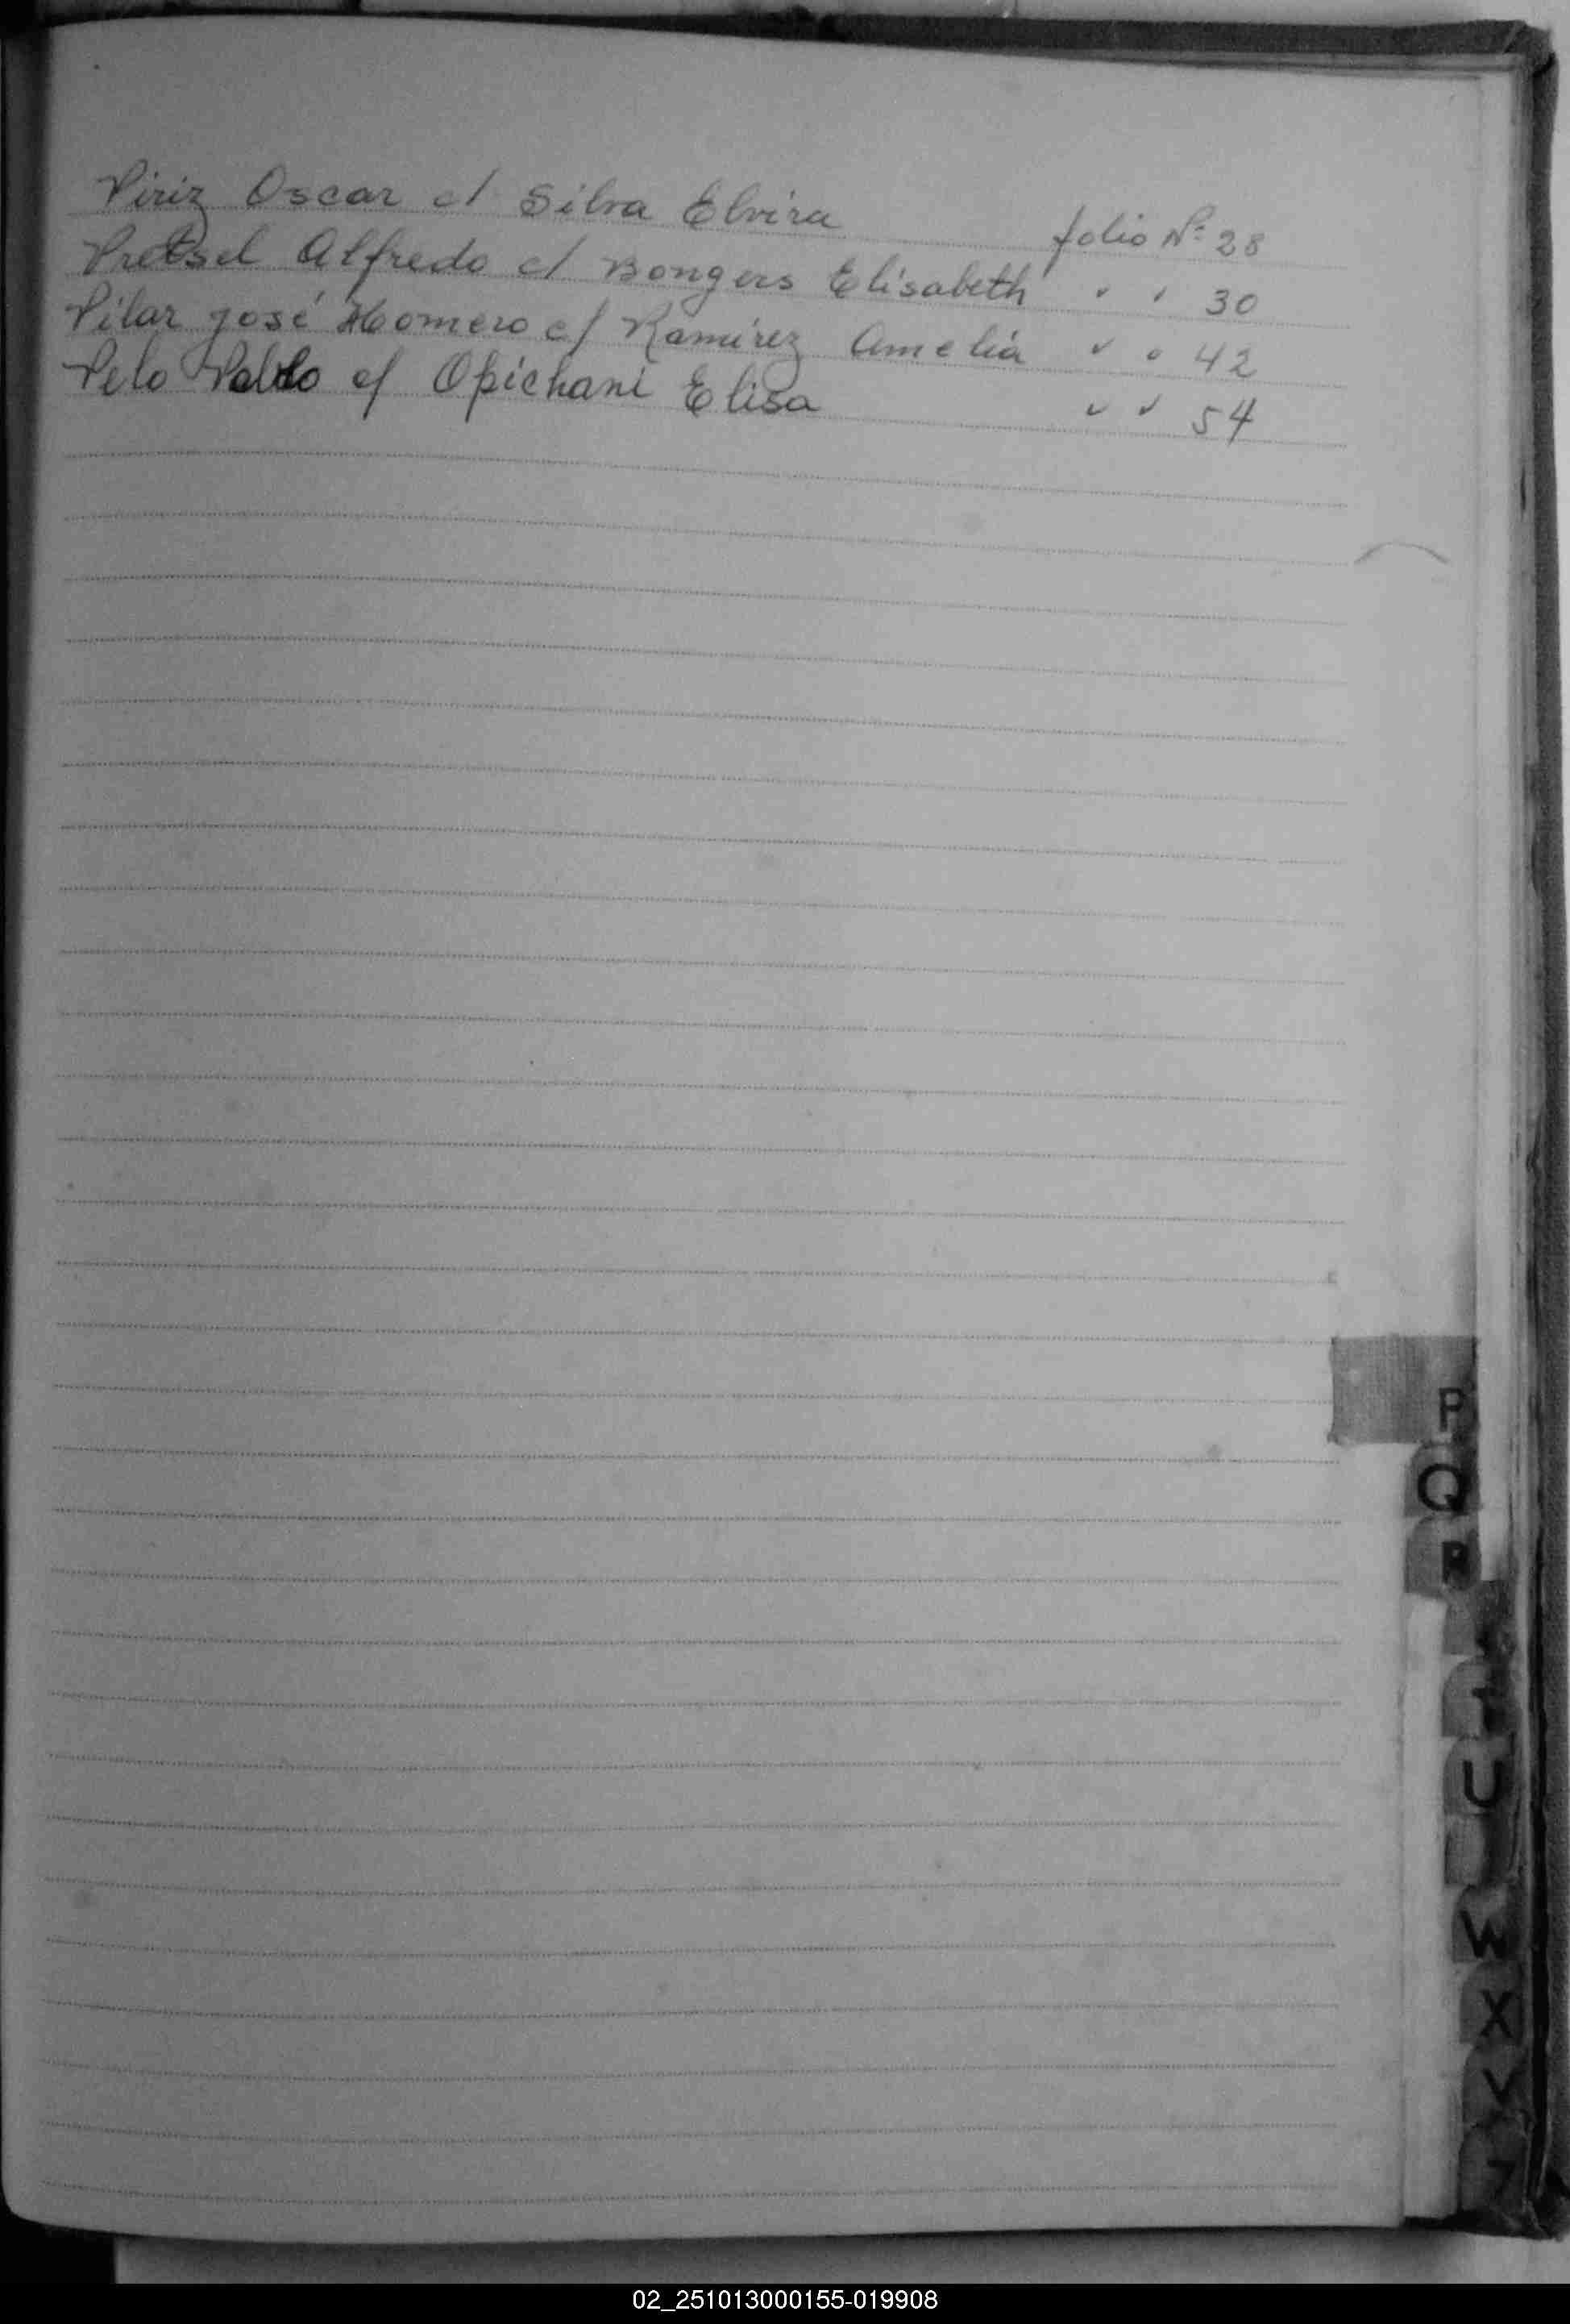 Piriz Oscar c/ Silva Elvira folio Nº 28
Pretsel Alfredo c/ Bongers Elisabeth " " 30
Pilar José Homero c/ Ramírez Amelia " " 42
Pelo Pablo c/ Opichani Elisa " " 54
P
Q
R
U
W
X
Z
02_251013000155-019908